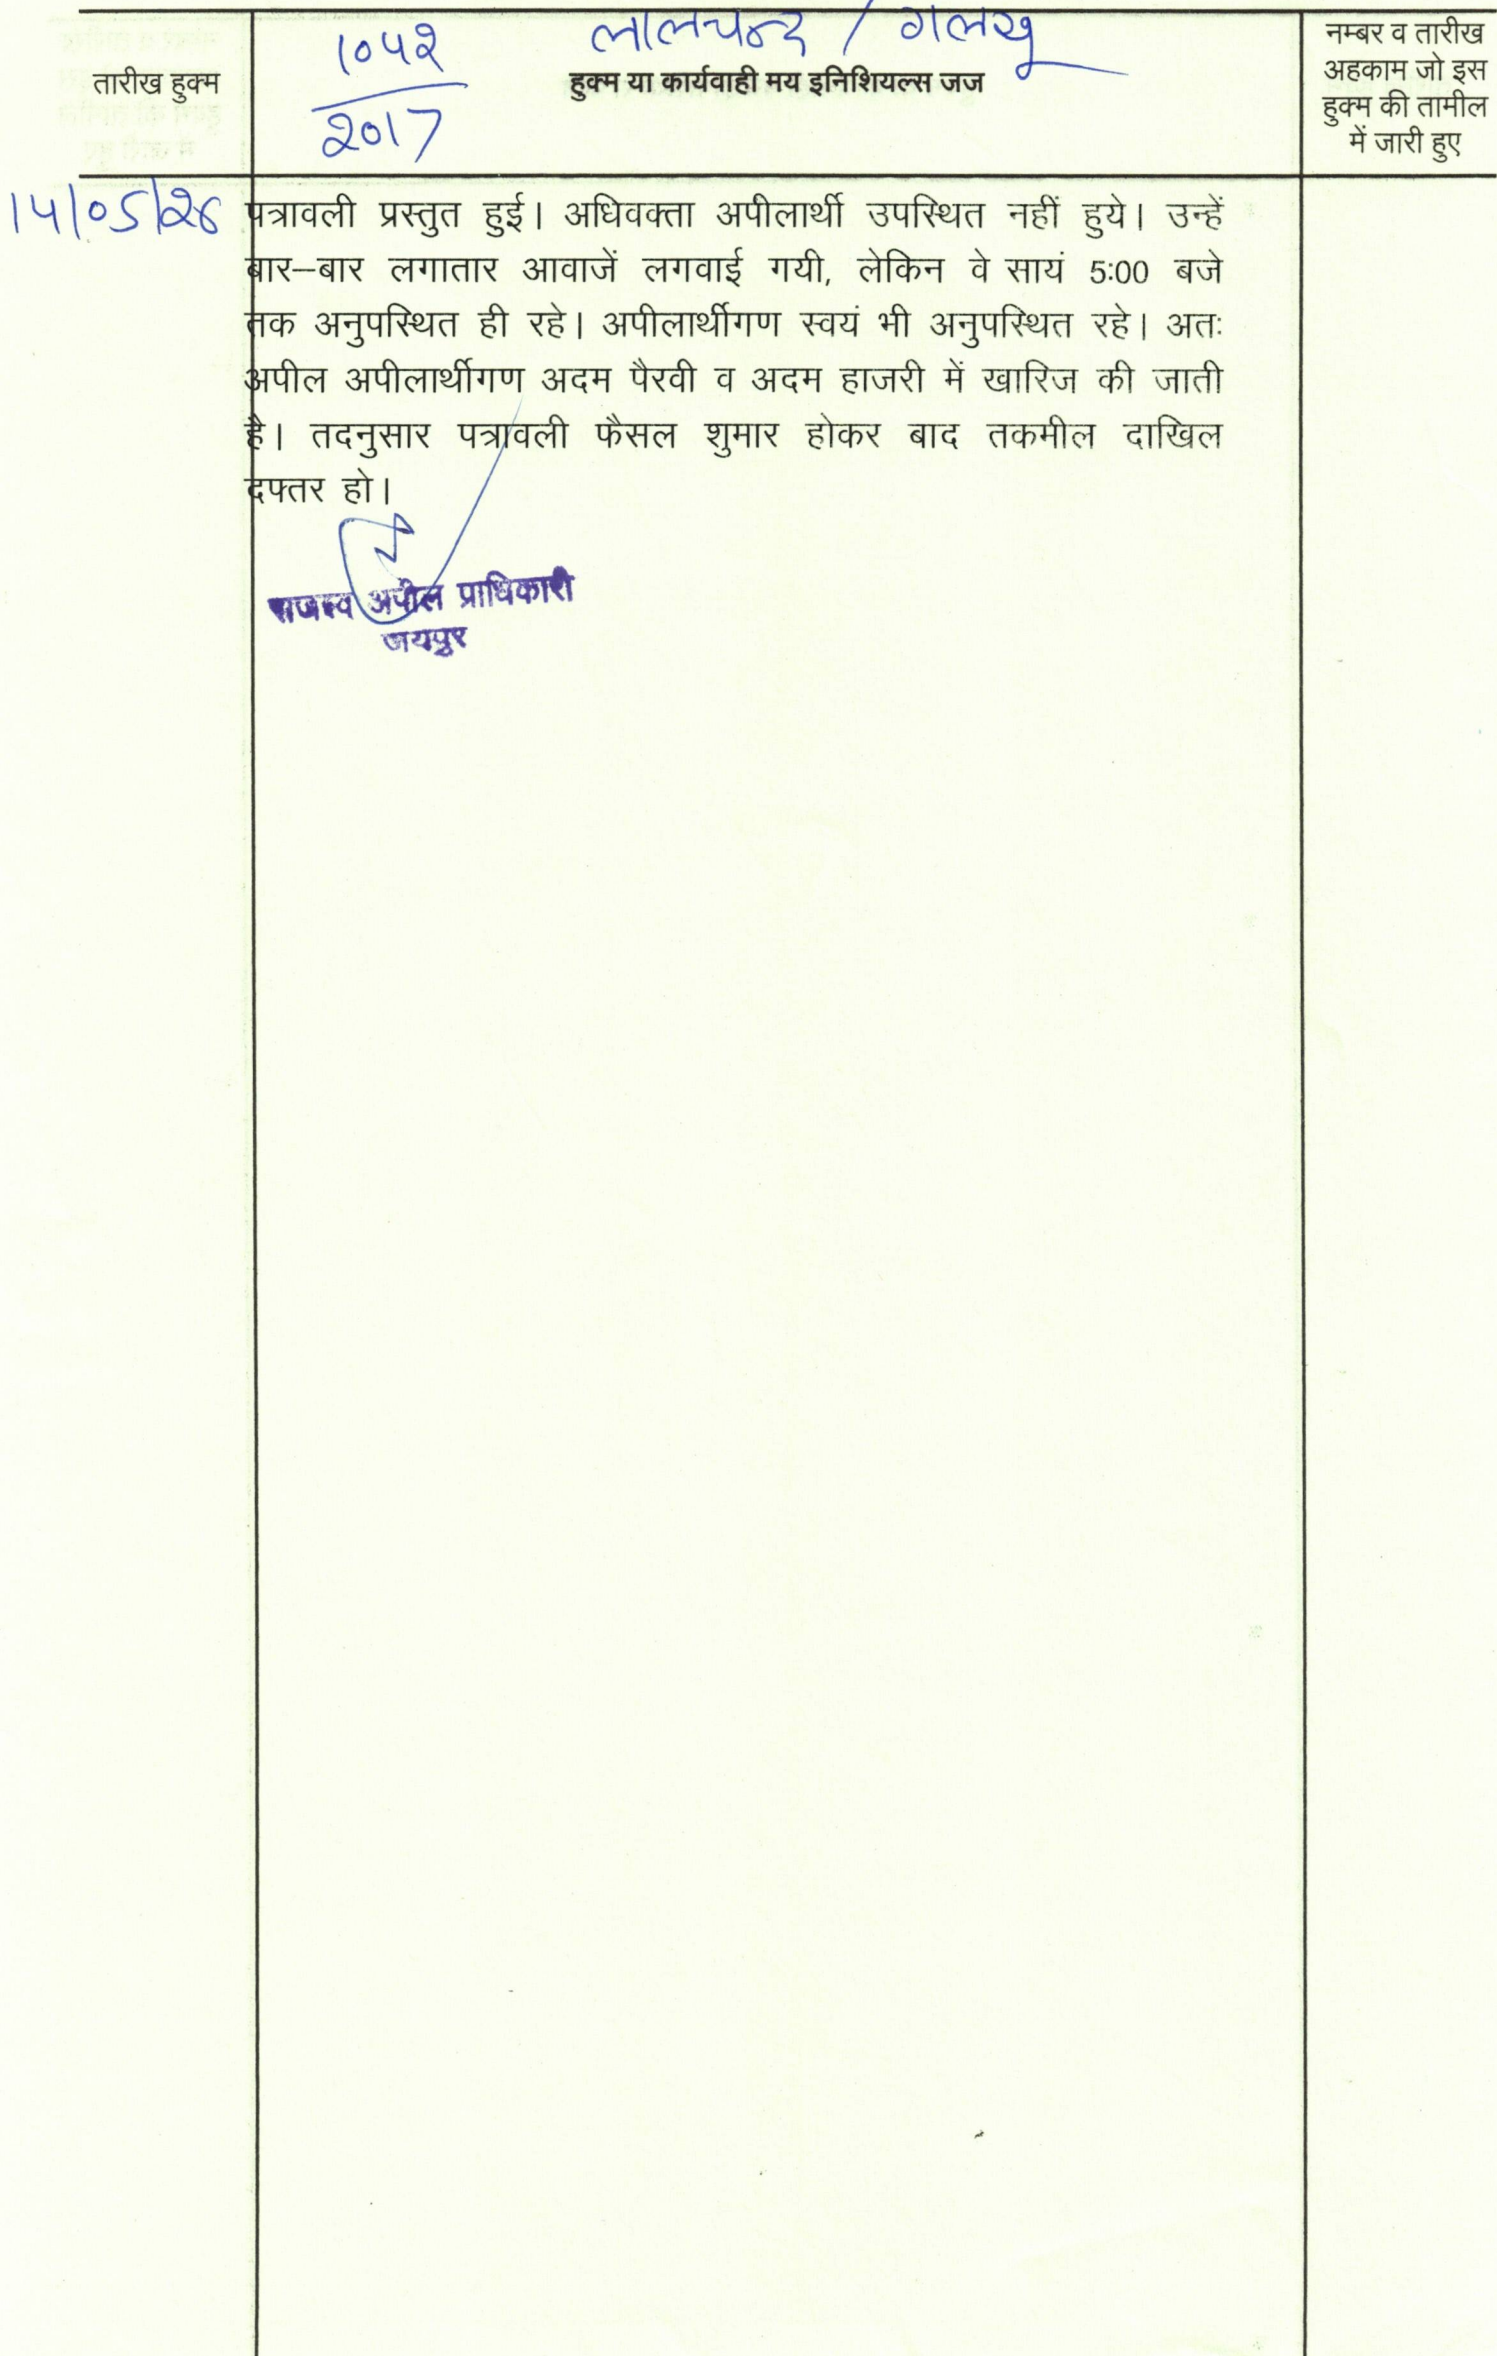 तारीख हुक्म
1052
2017
लालचन्द /
हुक्म या कार्यवाही मय इनिशियल्स जज
नम्बर व तारीख
अहकाम जो इस
हुक्म की तामील
में जारी हुए
14/05/26
पत्रावली प्रस्तुत हुई। अधिवक्ता अपीलार्थी उपस्थित नहीं हुये। उन्हें
बार–बार लगातार आवाजें लगवाई गयी, लेकिन वे सायं 5:00 बजे
तक अनुपस्थित ही रहे। अपीलार्थीगण स्वयं भी अनुपस्थित रहे। अतः
अपील अपीलार्थीगण अदम पैरवी व अदम हाजरी में खारिज की जाती
है। तदनुसार पत्रावली फैसल शुमार होकर बाद तकमील दाखिल
दफ्तर हो।
राजस्व अपील प्राधिकारी
जयपुर